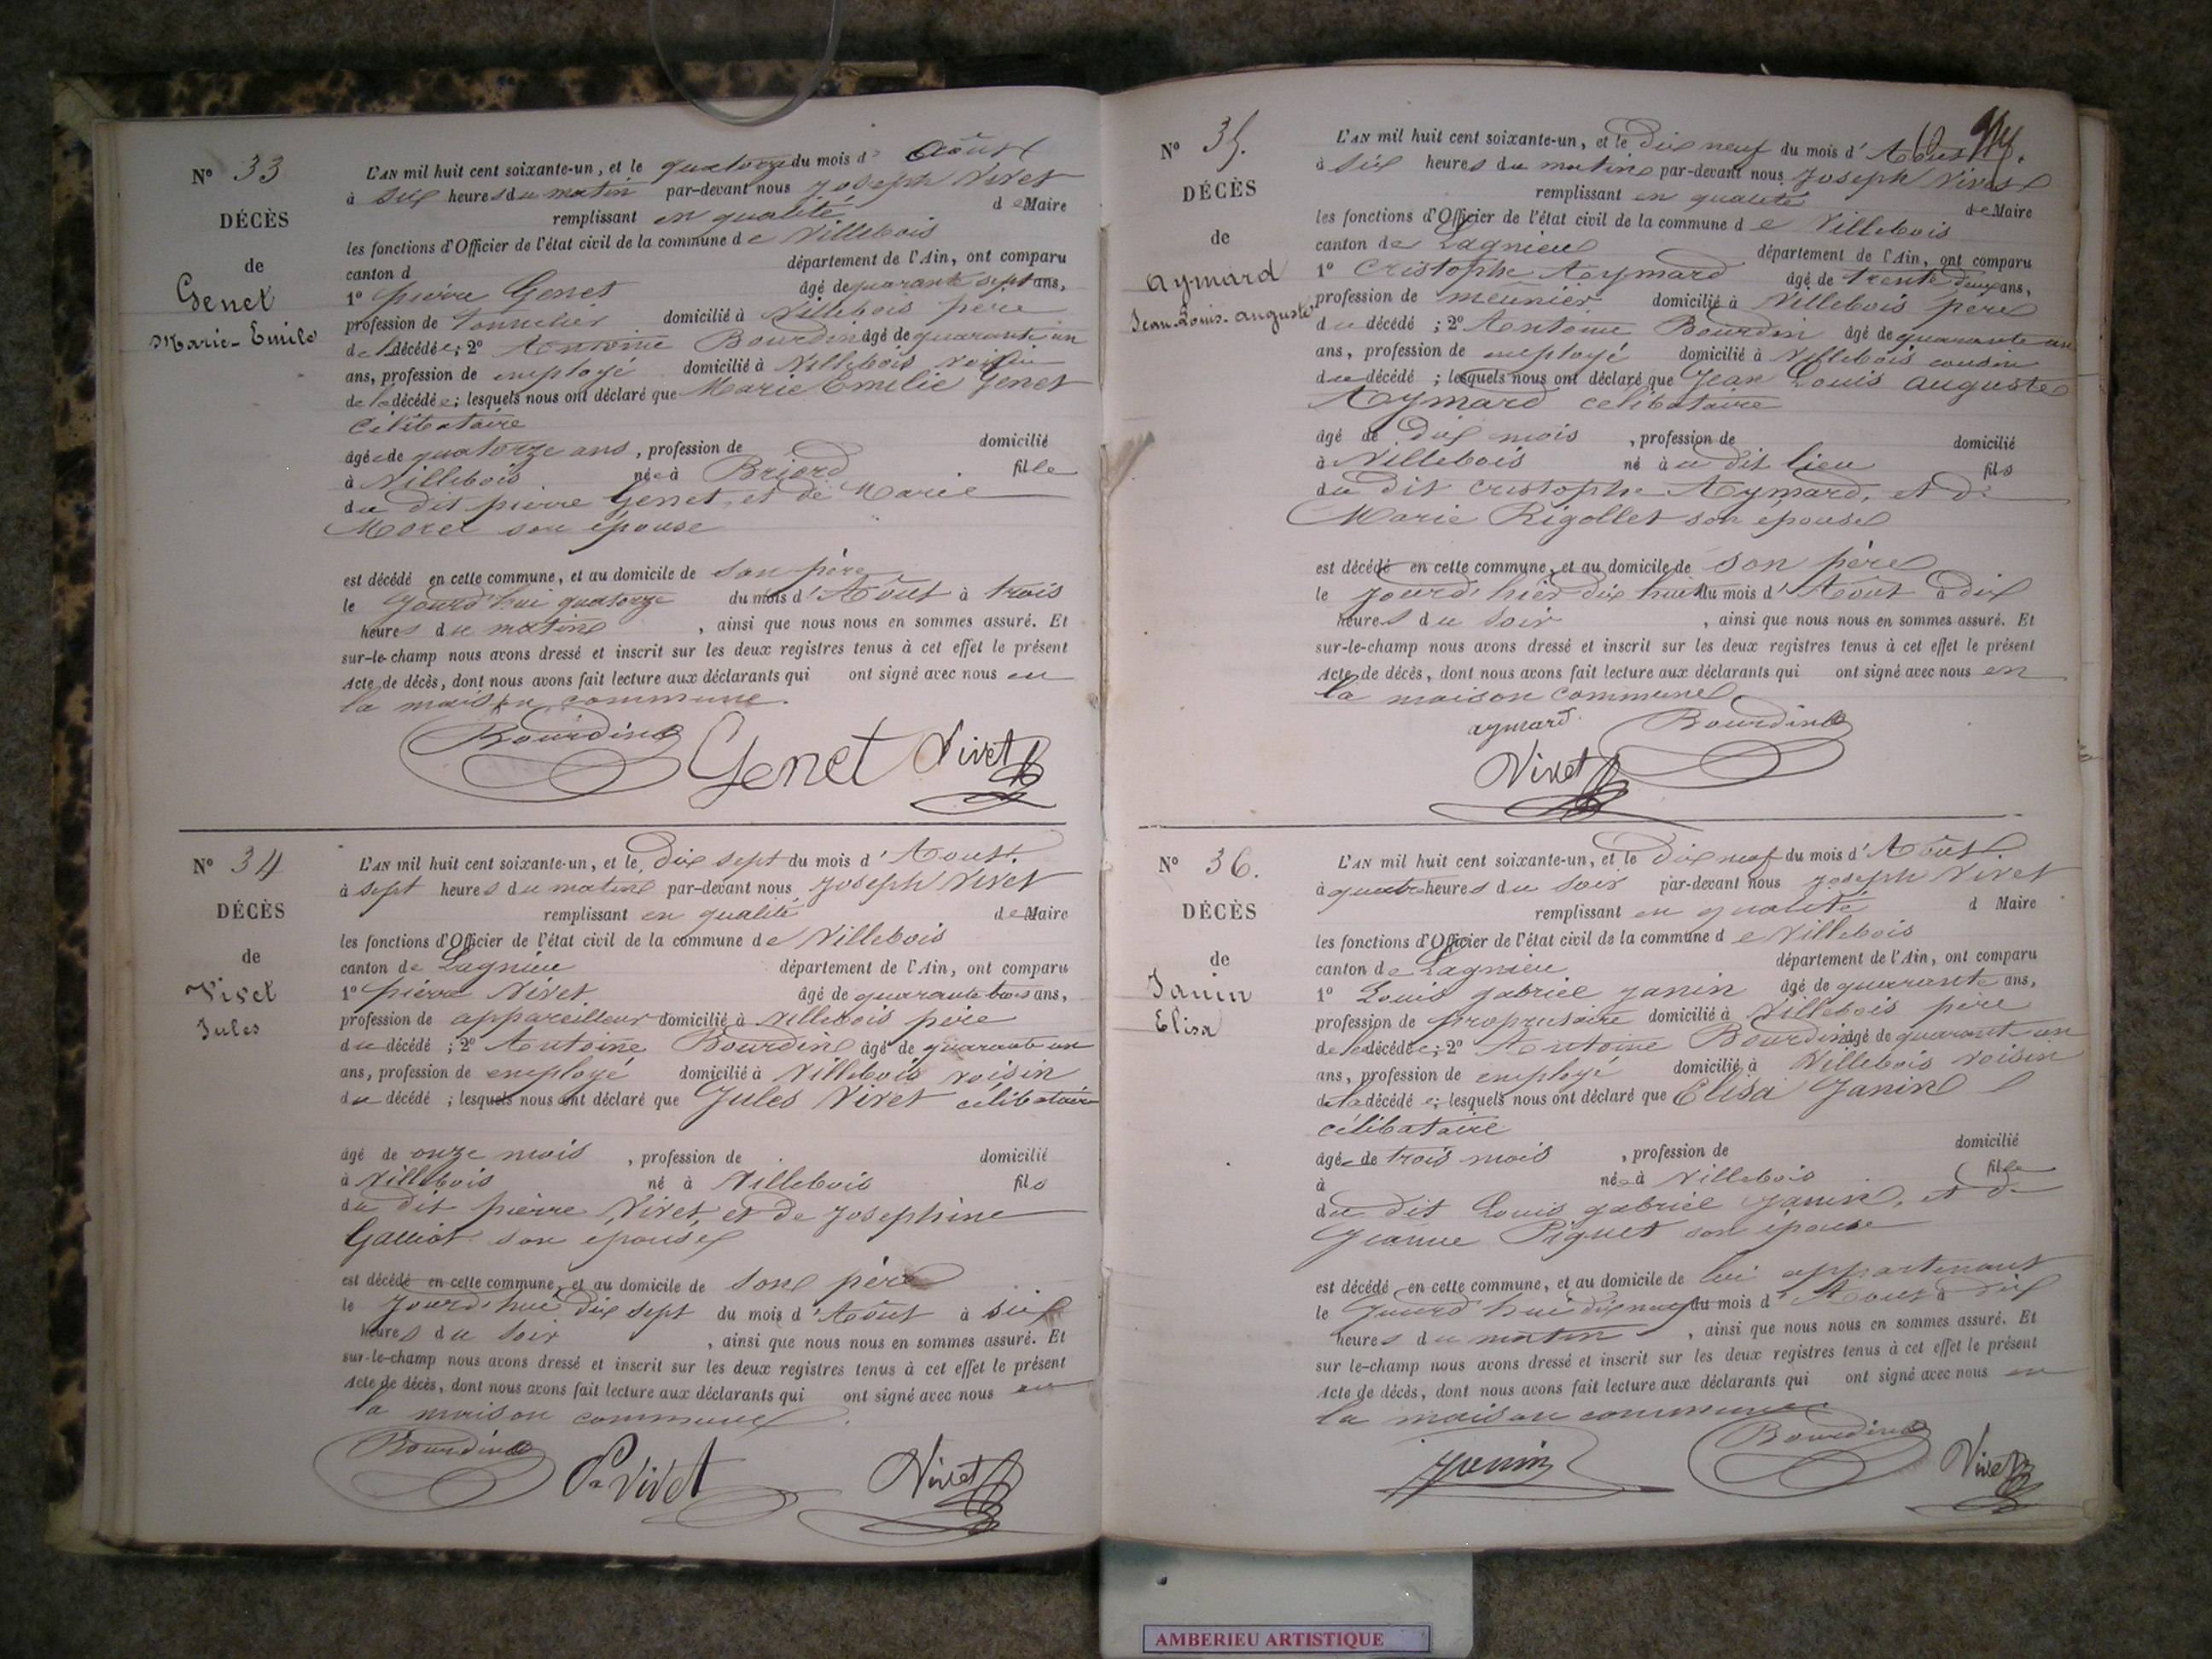 N° 33
DÉCÈS
de
Genet
Marie-Emile
L'AN mil huit cent soixante-un, et le quatorze du mois d' Août
à six heures du matin par-devant nous Joseph Vivet
remplissant en qualité de Maire
les fonctions d'Officier de l'état civil de la commune de Villebois
canton d département de l'Ain, ont comparu
1° pierre Genet âgé de quarante sept ans,
profession de tonnelier domicilié à Villebois père
de la décédée; 2° Antoine Bourdin âgé de quarante un
ans, profession de employé domicilié à Villebois voisin
de la décédée; lesquels nous ont déclaré que Marie Emelie Genet
célibataire
âgée de quatorze ans, profession de domicilié
à Villebois née à Briord fille
du dit pierre Genet, et de Marie
Morel son épouse
est décédé en cette commune, et au domicile de son père
le Jourd'hui quatorze du mois d'Août à trois
heures du matin , ainsi que nous nous en sommes assuré. Et
sur-le-champ nous avons dressé et inscrit sur les deux registres tenus à cet effet le présent
Acte de décès, dont nous avons fait lecture aux déclarants qui ont signé avec nous en
la maison commune.
Bourdin Genet Vivet
N° 34
DÉCÈS
de
Vivet
Jules
L'AN mil huit cent soixante-un, et le dix sept du mois d'Aout.
à sept heures du matin par-devant nous Joseph Vivet
remplissant en qualité de Maire
les fonctions d'Officier de l'état civil de la commune de Villebois
canton de Lagnieu département de l'Ain, ont comparu
1° pierre Vivet âgé de quarante trois ans,
profession de appareilleur domicilié à Villebois père
du décédé ; 2° Antoine Bourdin âgé de quarante un
ans, profession de employé domicilié à Villebois voisin
du décédé ; lesquels nous ont déclaré que Jules Vivet célibataire
âgé de onze mois , profession de domicilié
à Villebois né à Villebois fils
du dit pierre Vivet, et de Josephine
Galliot son epouse
est décédé en cette commune, et au domicile de son père
le Jourd'hui dix sept du mois d'Août à six
heures du soir , ainsi que nous nous en sommes assuré. Et
sur-le-champ nous avons dressé et inscrit sur les deux registres tenus à cet effet le présent
Acte de décès, dont nous avons fait lecture aux déclarants qui ont signé avec nous en
la maison commune.
Bourdin Pre Vivet Vivet
N° 35.
DÉCÈS
de
Aymard
Jean-Louis-auguste
L'AN mil huit cent soixante-un, et le Dix neuf du mois d'Août
à six heures du matin par-devant nous Joseph Vivet
remplissant en qualité de Maire
les fonctions d'Officier de l'état civil de la commune de Villebois
canton de Lagnieu département de l'Ain, ont comparu
1° Cristophe Aymard âgé de trente deux ans,
profession de meûnier domicilié à Villebois père
du décédé ; 2° Antoine Bourdin âgé de quarante un
ans, profession de employé domicilié à Villebois cousin
du décédé ; lesquels nous ont déclaré que Jean Louis auguste
Aymard celibataire
âgé de Dix mois , profession de domicilié
à Villebois né à u dit lieu fils
du dit cristophe Aymard, et de
Marie Rigollet son épouse
est décédé en cette commune, et au domicile de son père
le Jourd'hier dix huit du mois d'Août à dix
heures du soir , ainsi que nous nous en sommes assuré. Et
sur-le-champ nous avons dressé et inscrit sur les deux registres tenus à cet effet le présent
Acte de décès, dont nous avons fait lecture aux déclarants qui ont signé avec nous en
la maison commune.
aymard Bourdin
Vivet
N° 36.
DÉCÈS
de
Janin
Elisa
L'AN mil huit cent soixante-un, et le dix neuf du mois d'Août
à quatre heures du soir par-devant nous Joseph Vivet
remplissant en qualité d Maire
les fonctions d'Officier de l'état civil de la commune de Villebois
canton de Lagnieu département de l'Ain, ont comparu
1° Louis gabriel Janin âgé de quarante ans,
profession de propriétaire domicilié à Villebois père
de la décédée; 2° Antoine Bourdin âgé de quarante un
ans, profession de employé domicilié à Villebois voisin
de la décédée; lesquels nous ont déclaré que Elisa Janin
célibataire
âgée de trois mois , profession de domicilié
à née à Villebois fille
du dit Louis gabriel Janin, et de
Jeanne Piquet son épouse
est décédé en cette commune, et au domicile de lui appartenant
le Jourd'hui dix neuf du mois d'Aout à dix
heures du matin , ainsi que nous nous en sommes assuré. Et
sur le-champ nous avons dressé et inscrit sur les deux registres tenus à cet effet le présent
Acte de décès, dont nous avons fait lecture aux déclarants qui ont signé avec nous en
la maison commune
Janin Bourdin Vivet
AMBERIEU ARTISTIQUE